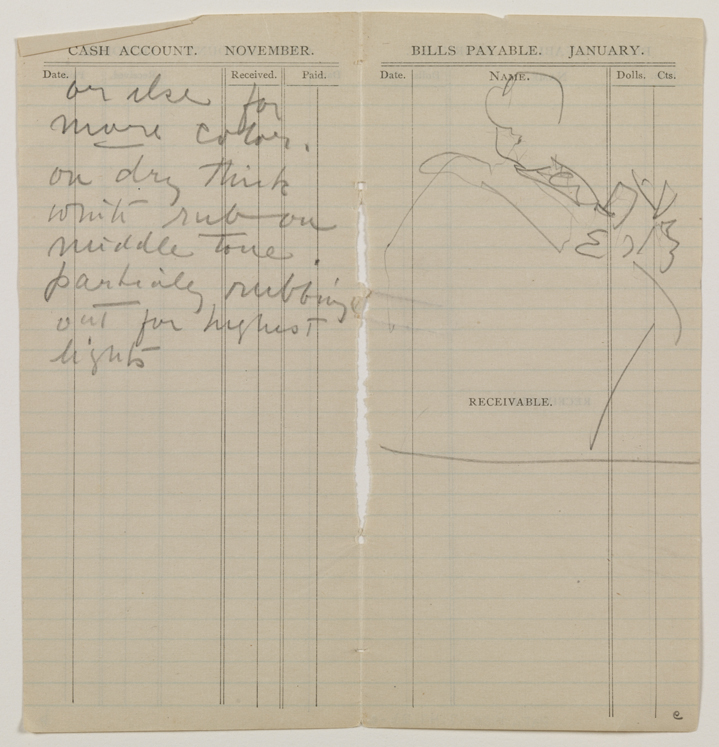 CASH ACCOUNT. NOVEMBER.
Date. Received. Paid.
or else for
more color.
on dry think
white rub on
middle tone.
partialy rubbing
out for highest
lights
BILLS PAYABLE. JANUARY.
Date. NAME. Dolls. Cts.
RECEIVABLE.
e